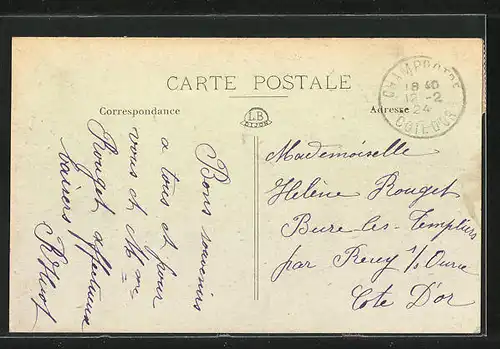 CARTE POSTALE
Correspondance
LB
DIJON
Adresse
CHAMPDOTRE
18 40
12-2
24
COTE D'OR
Bons souvenirs
a tous et pour
vous et Mme
Rouget affectueux
baisers
Mademoiselle
Hélène Rouget
Bure-les-Templiers
par Recey s/Ource
Cote D'or